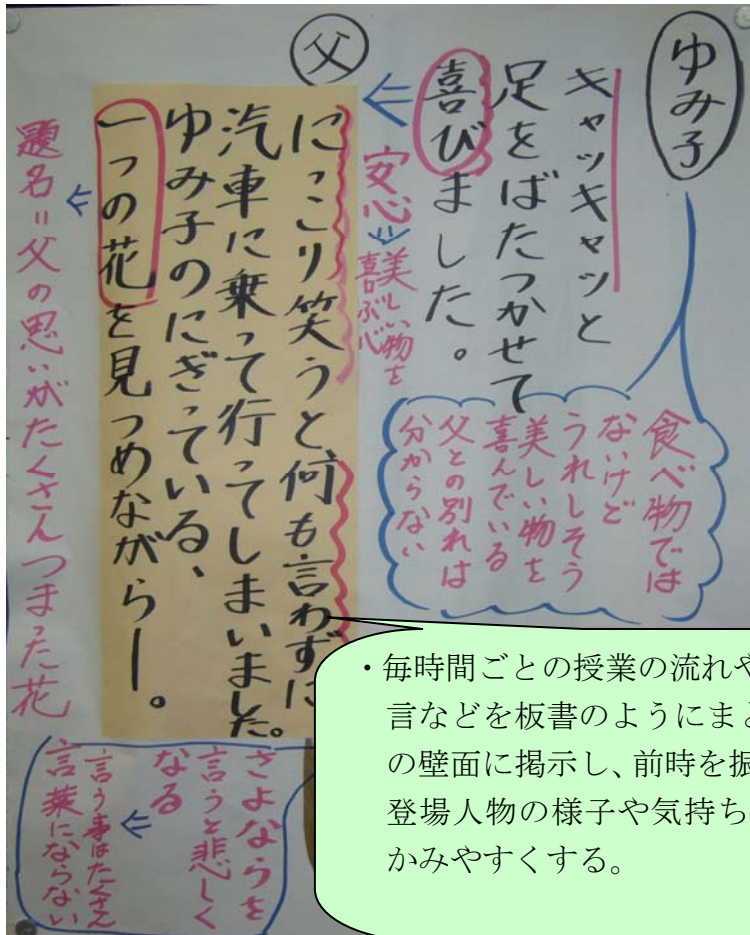 ゆみ子
キャッキャッと
足をばたつかせて
喜びました。
食べ物では
ないけど
うれしそう
美しい物を
喜んでいる
父との別れは
分からない
安心⇒美しい物を
喜ぶ心
父
にっこり笑うと何も言わずに
汽車に乗って行ってしまいました。
ゆみ子のにぎっている、
一つの花を見つめながらー。
さよならを
言うと悲しく
なる
言う事はたくさん
言葉にならない
題名=父の思いがたくさんつまった花
・毎時間ごとの授業の流れや
言などを板書のようにまと
の壁面に掲示し、前時を振
登場人物の様子や気持ち
かみやすくする。